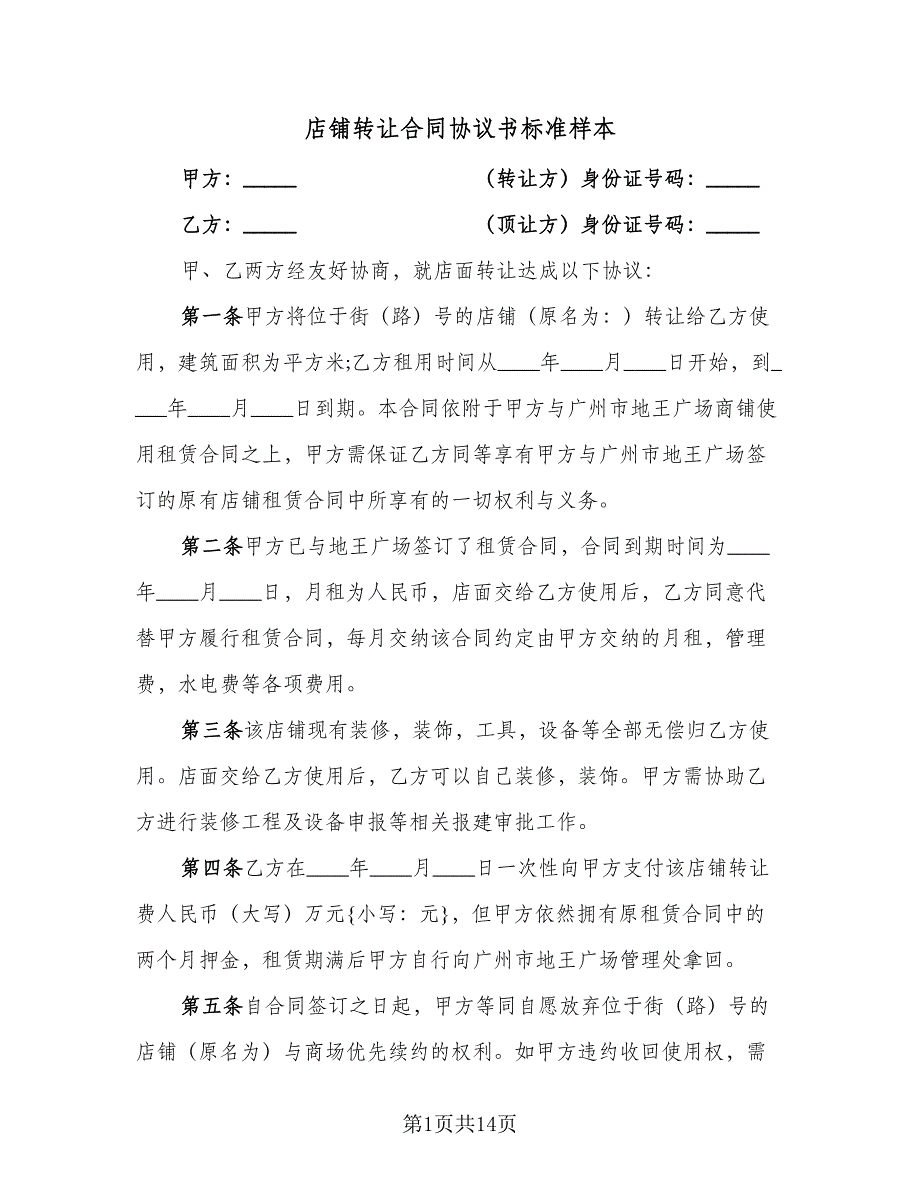 店铺转让合同协议书标准样本
甲方：_____ （转让方）身份证号码：_____
乙方：_____ （顶让方）身份证号码：_____
甲、乙两方经友好协商，就店面转让达成以下协议：
第一条甲方将位于街（路）号的店铺（原名为：）转让给乙方使
用，建筑面积为平方米;乙方租用时间从____年____月____日开始，到_
___年____月____日到期。本合同依附于甲方与广州市地王广场商铺使
用租赁合同之上，甲方需保证乙方同等享有甲方与广州市地王广场签
订的原有店铺租赁合同中所享有的一切权利与义务。
第二条甲方已与地王广场签订了租赁合同，合同到期时间为____
年____月____日，月租为人民币，店面交给乙方使用后，乙方同意代
替甲方履行租赁合同，每月交纳该合同约定由甲方交纳的月租，管理
费，水电费等各项费用。
第三条该店铺现有装修，装饰，工具，设备等全部无偿归乙方使
用。店面交给乙方使用后，乙方可以自己装修，装饰。甲方需协助乙
方进行装修工程及设备申报等相关报建审批工作。
第四条乙方在____年____月____日一次性向甲方支付该店铺转让
费人民币（大写）万元{小写：元}，但甲方依然拥有原租赁合同中的
两个月押金，租赁期满后甲方自行向广州市地王广场管理处拿回。
第五条自合同签订之日起，甲方等同自愿放弃位于街（路）号的
店铺（原名为）与商场优先续约的权利。如甲方违约收回使用权，需
第1页共14页